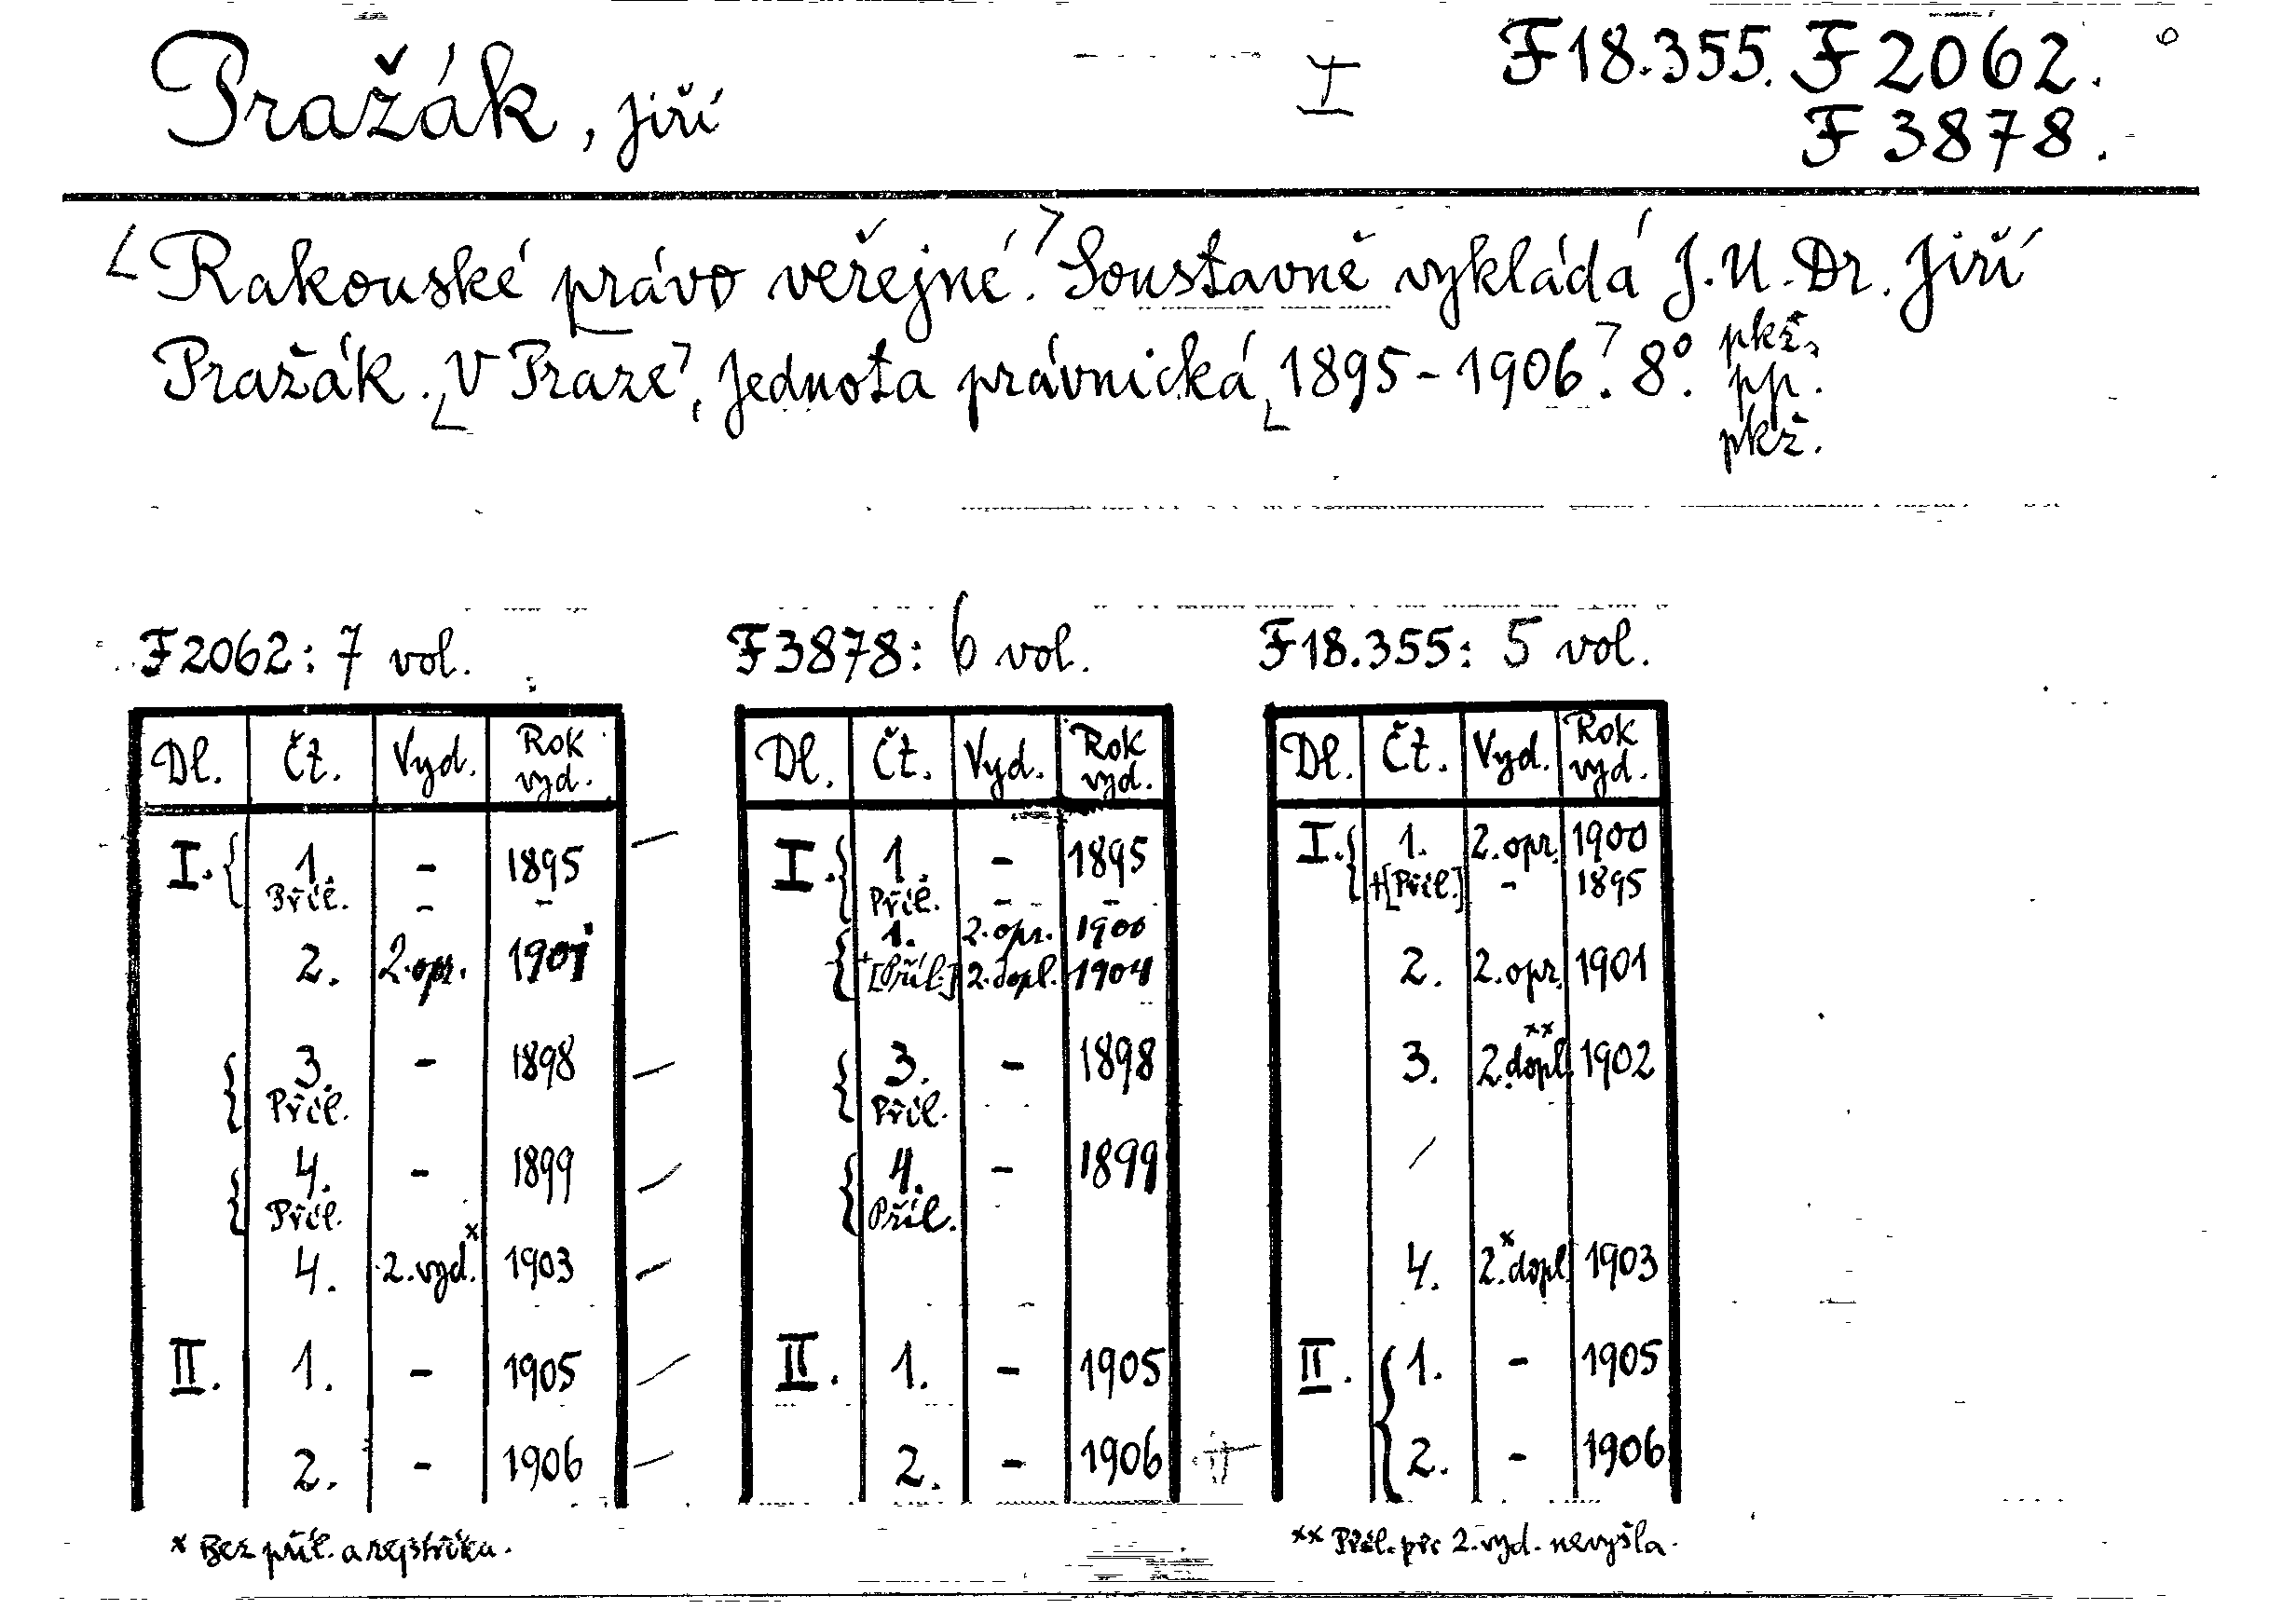 Pražák, Jiří I F18.355. F 2062.
F 3878.
Rakouské právo veřejné. Soustavně vykládá J. U. Dr. Jiří
Pražák. V Praze, Jednota právnická 1895-1906. 8°. pkž.
pp.
pkž.
F2062: 7 vol.
Dl. Čt. Vyd. Rok vyd.
I. { 1. - 1895
Příl. - -
2. 2.opr. 1901
{ 3. - 1898
Příl.
{ 4. - 1899
Příl.
4. 2.vyd.× 1903
II. 1. - 1905
2. - 1906
× Bez příl. a rejstříku.
F3878: 6 vol.
Dl. Čt. Vyd. Rok vyd.
I. { 1. - 1895
Příl. - -
{ 1. 2.opr. 1900
+[Příl.] 2.dopl. 1904
{ 3. - 1898
Příl.
{ 4. - 1899
Příl.
II. 1. - 1905
2. - 1906
F18.355: 5 vol.
Dl. Čt. Vyd. Rok vyd.
I. { 1. 2.opr. 1900
+[Příl.] - 1895
2. 2.opr. 1901
3. 2.dopl.×× 1902
4. 2.dopl.× 1903
II. { 1. - 1905
2. - 1906
×× Příl. při 2.vyd. nevyšla.